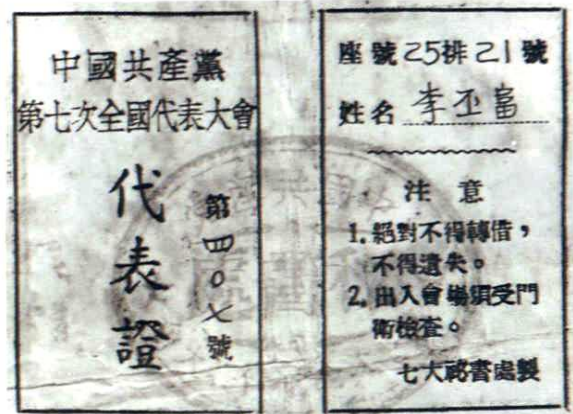 中國共產黨
第七次全國代表大會
代表證
第四〇七號
座號25排21號
姓名 李丕富
注意
1. 絕對不得轉借,
不得遺失。
2. 出入會場須受門
衛檢查。
七大秘書處製